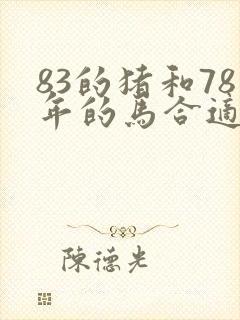 83的猪和78
年的馬合適
陳德光